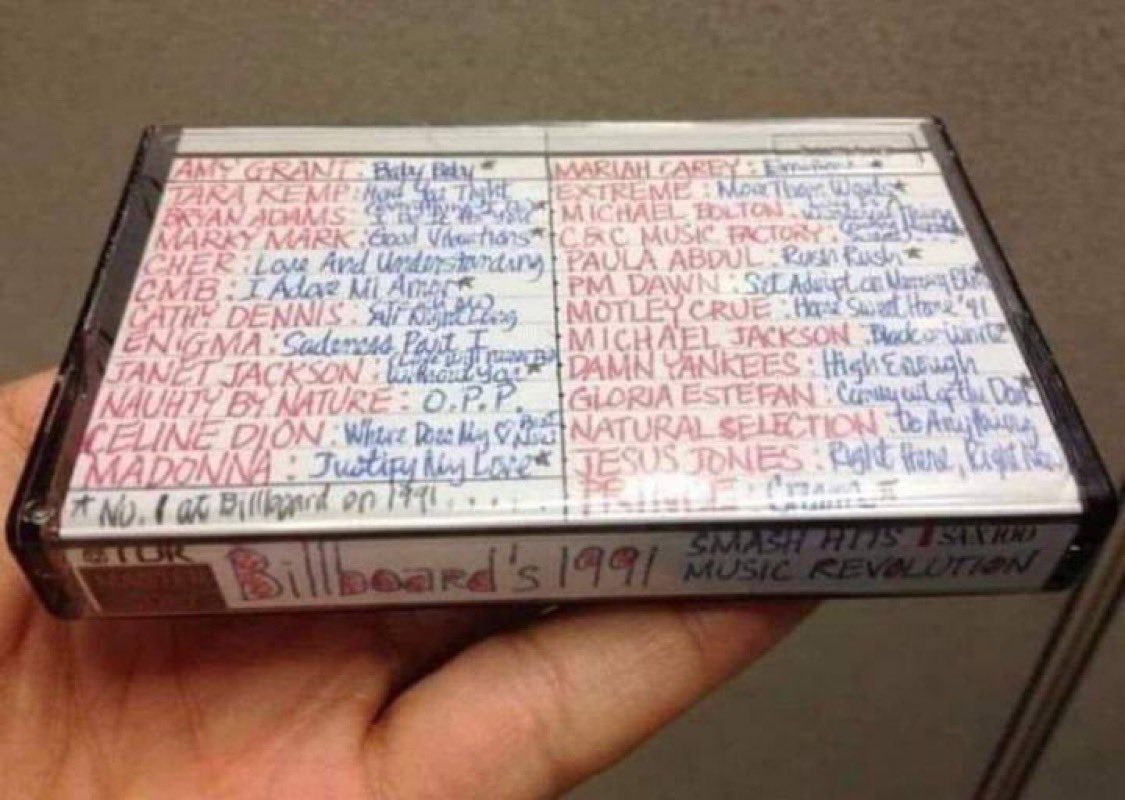 AMY GRANT: Baby Baby*
TARA KEMP: Hold You Tight
BRYAN ADAMS:
MARKY MARK: Good Vibrations*
CHER: Love And Understanding
CMB: I Adore Mi Amor*
CATHY DENNIS:
ENIGMA: Sadeness Part I
JANET JACKSON: Without You*
NAUHTY BY NATURE: O.P.P.
CELINE DION: Where Does My ♡
MADONNA: Justify My Love*
* NO. 1 at Billboard on 1991....
MARIAH CAREY: Emotions *
EXTREME: More Than Words*
MICHAEL BOLTON:
C&C MUSIC FACTORY:
PAULA ABDUL: Rush Rush*
PM DAWN: Set Adrift on Memory
MOTLEY CRUE: Home Sweet Home '91
MICHAEL JACKSON: Black or White*
DAMN YANKEES: High Enough
GLORIA ESTEFAN: Coming out of the Dark*
NATURAL SELECTION: Do Anything
JESUS JONES: Right Here, Right Now
PRINCE: Cream *
TDK
Billboard's 1991
SMASH HITS
MUSIC REVOLUTION